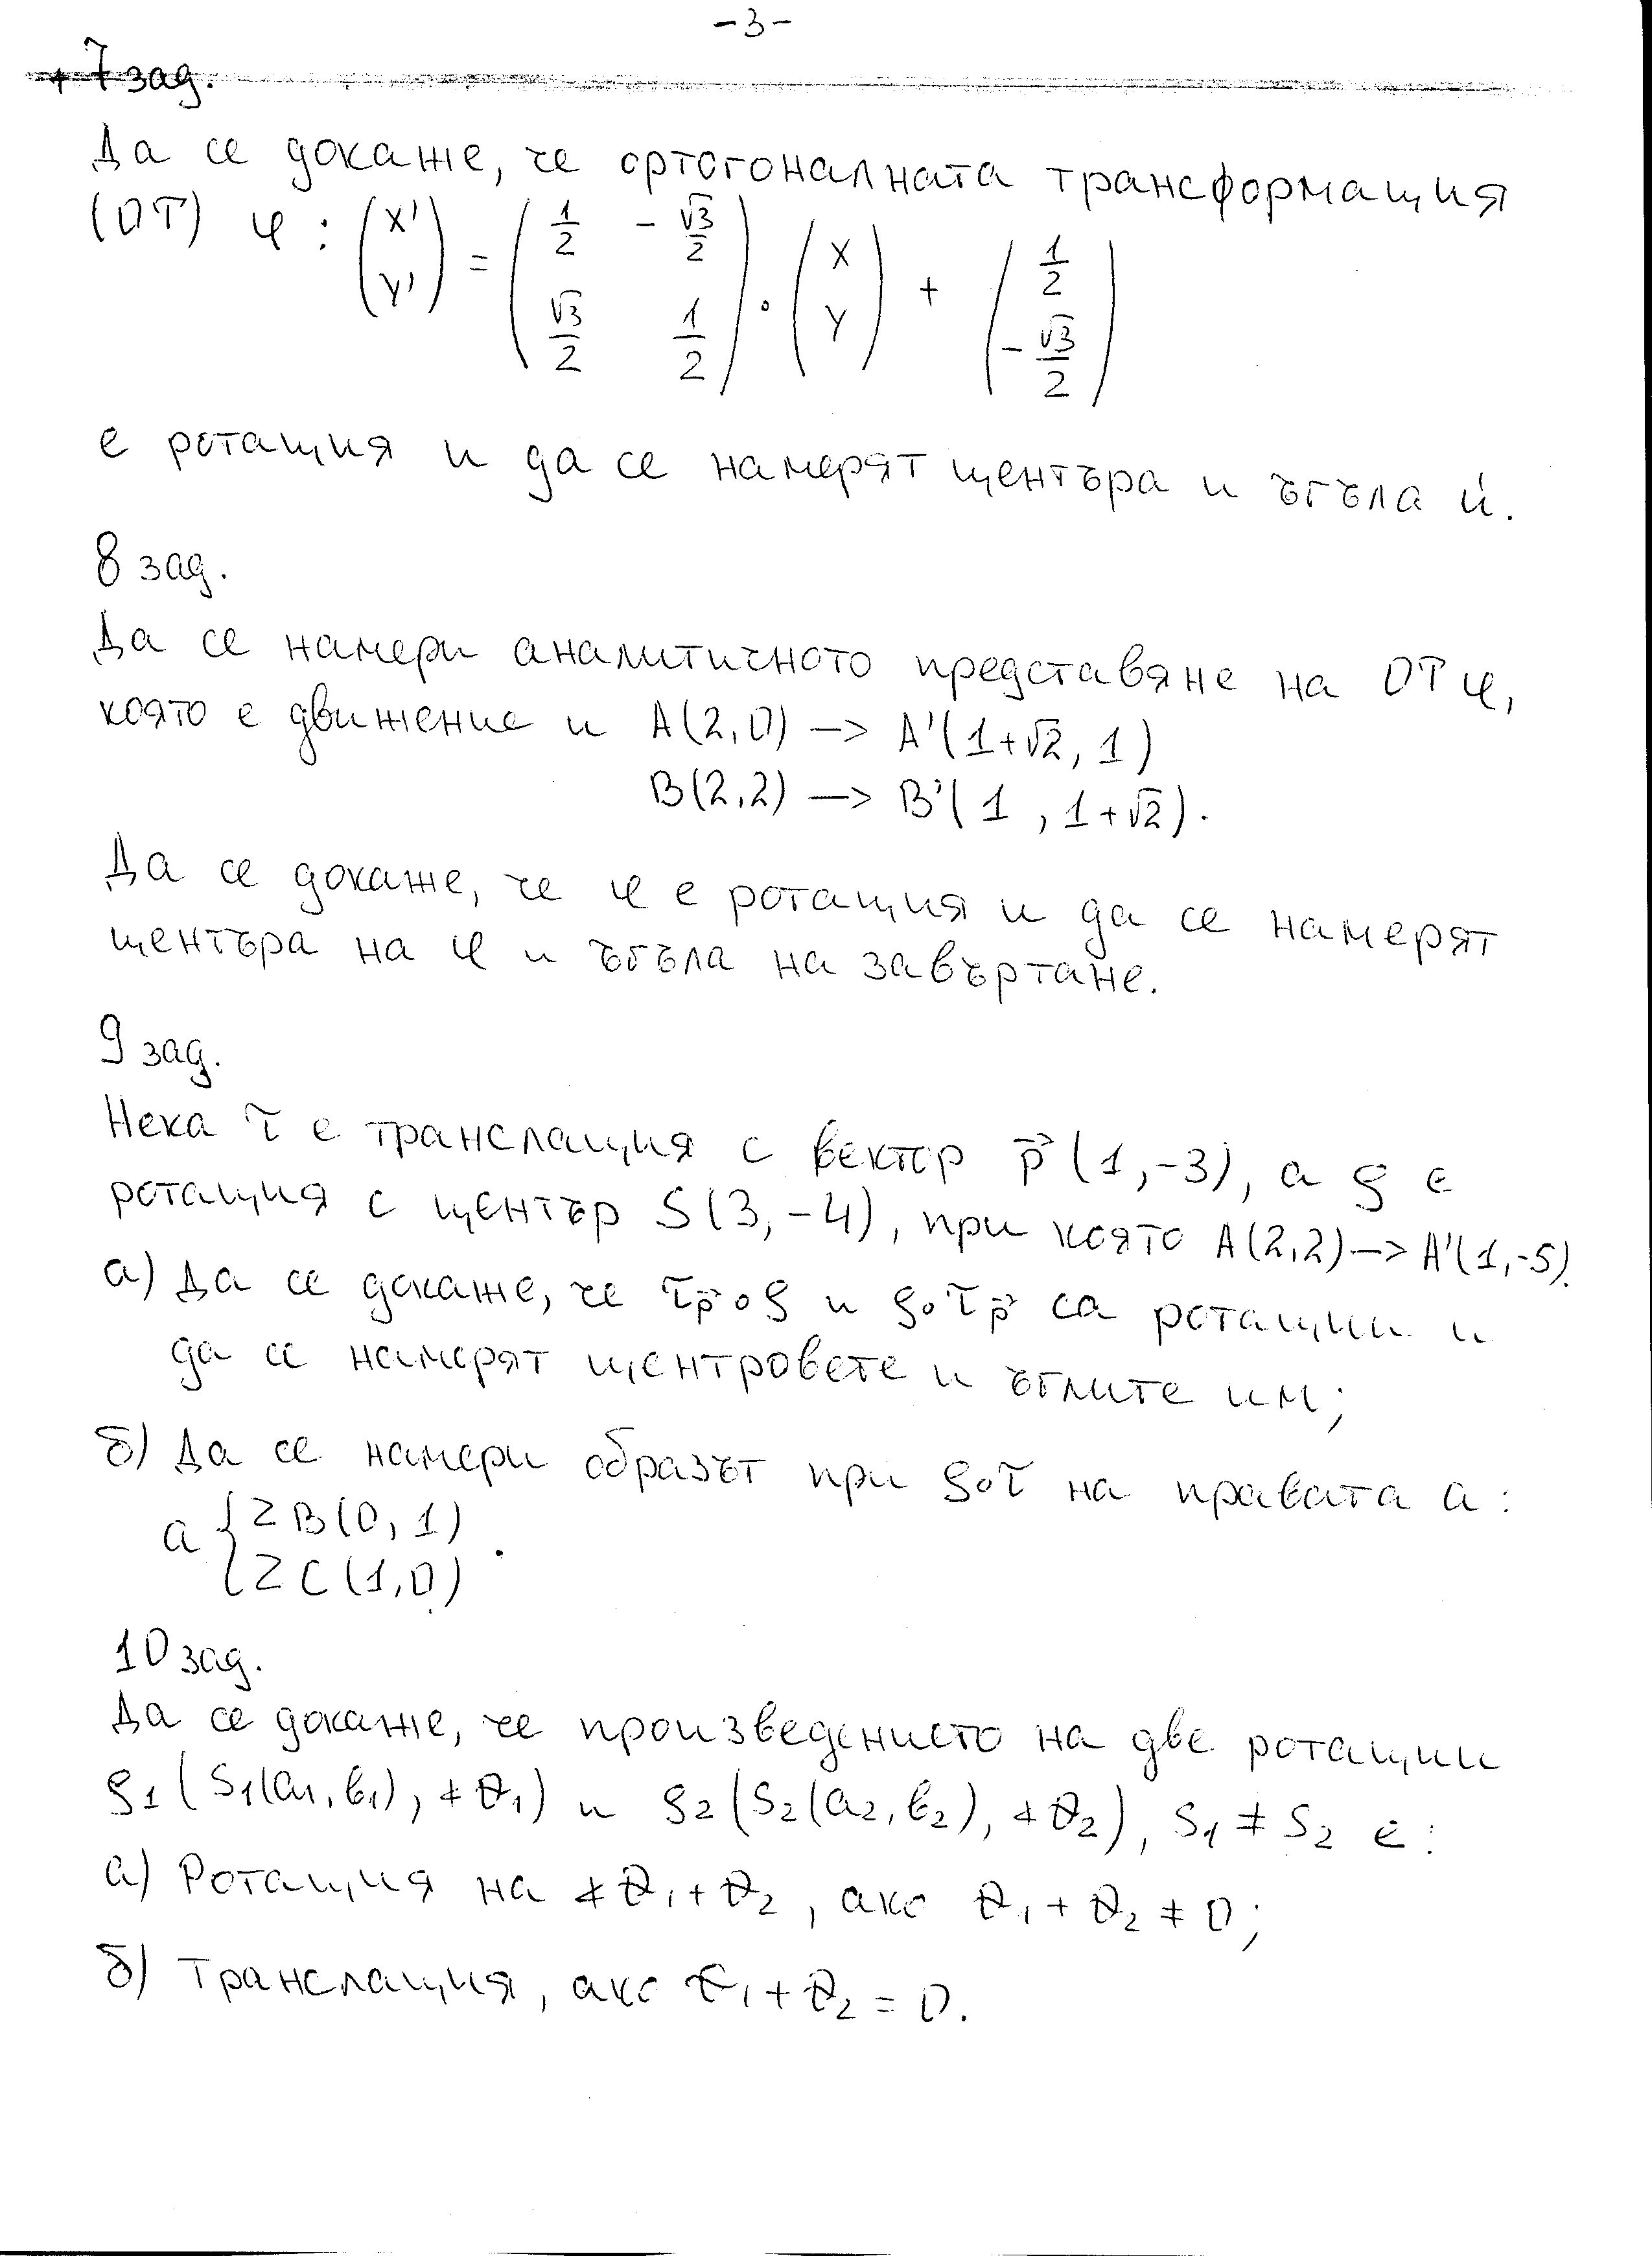 -3-
7 зад.
Да се докаже, че ортогоналната трансформация
(ОТ) φ: (x' y') = (1/2 -√3/2 √3/2 1/2) . (x y) + (1/2 -√3/2)
е ротация и да се намерят центъра и ъгъла ѝ.
8 зад.
Да се намери аналитичното представяне на ОТ φ,
която е движение и A(2,0) -> A'(1+√2, 1)
B(2,2) -> B'(1, 1+√2).
Да се докаже, че φ е ротация и да се намерят
центъра на φ и ъгъла на завъртане.
9 зад.
Нека τ е транслация с вектор p⃗(1,-3), а ρ е
ротация с център S(3,-4), при която A(2,2) -> A'(1,-5).
а) Да се докаже, че τp⃗∘ρ и ρ∘τp⃗ са ротации и
да се намерят центровете и ъглите им;
б) Да се намери образът при ρ∘τ на правата a:
a { Z B(0,1)
Z C(1,0) .
10 зад.
Да се докаже, че произведението на две ротации
ρ1(S1(a1,b1), ∢θ1) и ρ2(S2(a2,b2), ∢θ2), S1 ≠ S2 е:
а) Ротация на ∢θ1+θ2, ако θ1+θ2 ≠ 0;
б) Транслация, ако θ1+θ2 = 0.